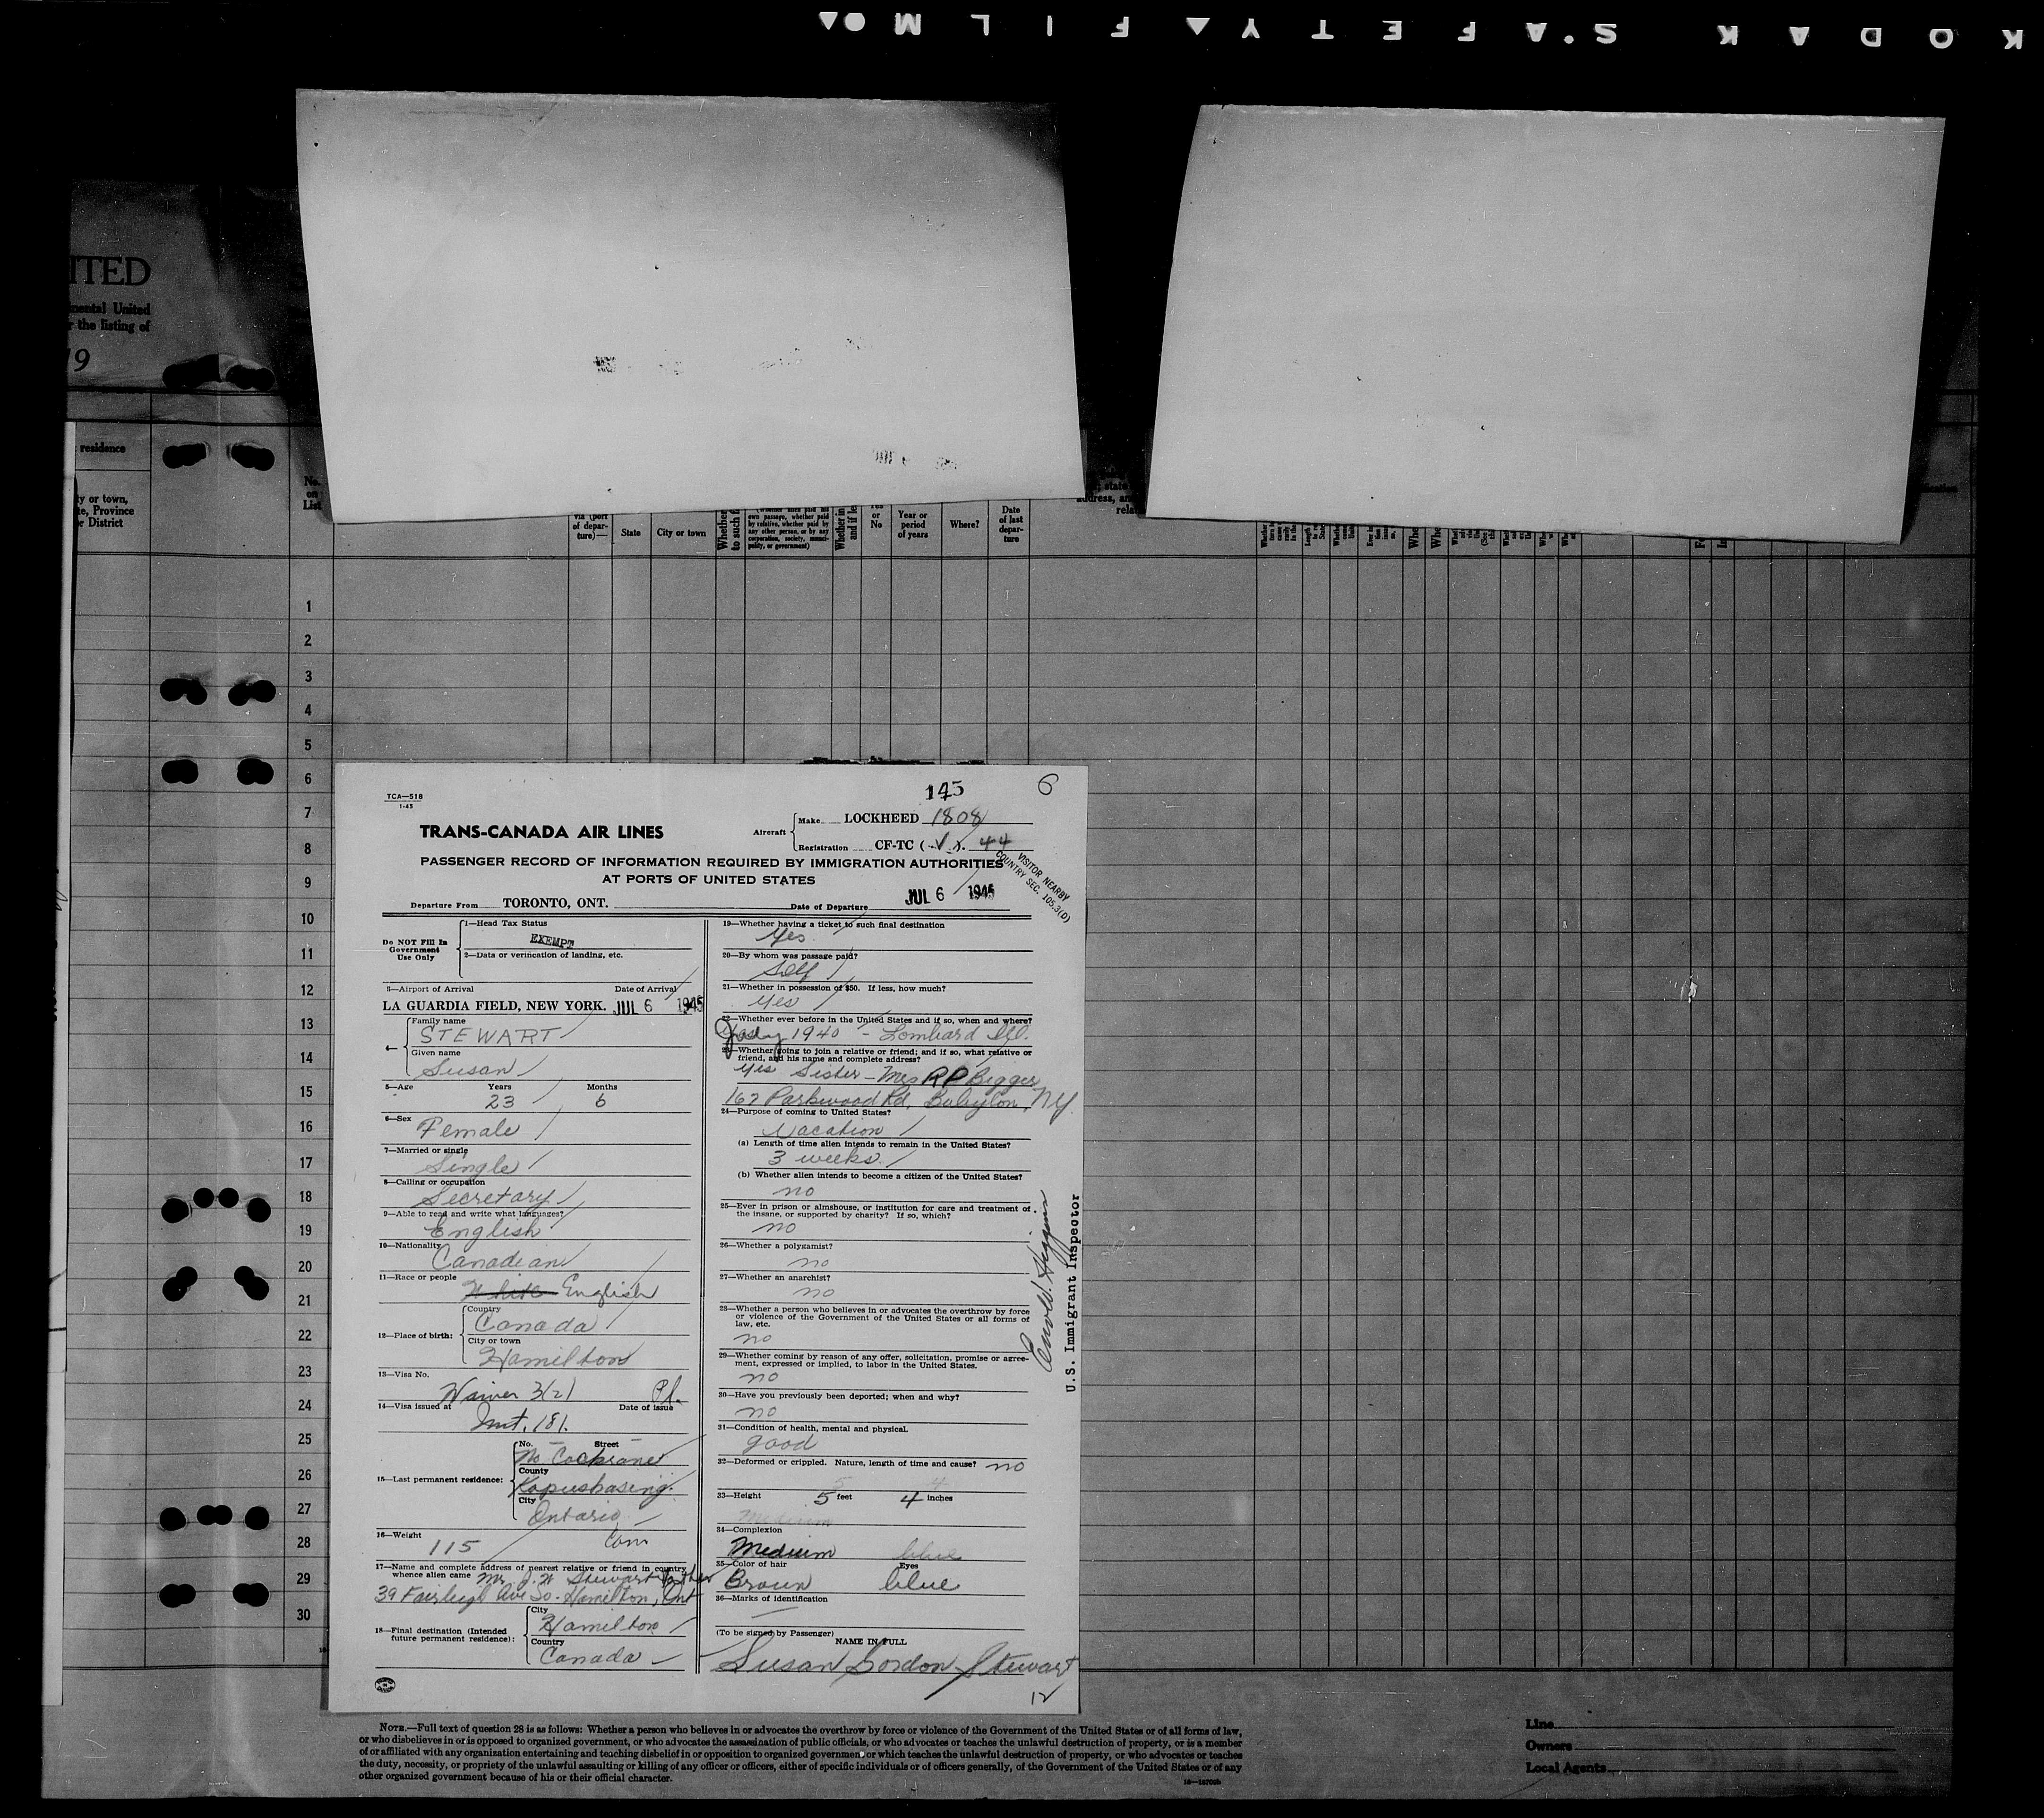 KODAK SAFETY FILM
ITED
mental United
r the listing of
19
residence
ty or town,
te, Province
r District
No.
on
List
via (port
of depar-
ture)—
State
City or town
Whether
to such f
own passage, whether paid
by relative, whether paid by
any other person, or by any
corporation, society, munici-
pality, or government)
Whether in
and if le
Yes
or
No
Year or
period
of years
Where?
Date
of last
depar-
ture
state
address, an
rela
1
2
3
4
5
6
7
8
9
10
11
12
13
14
15
16
17
18
19
20
21
22
23
24
25
26
27
28
29
30
TCA—518
1-43
145
6
TRANS-CANADA AIR LINES
Aircraft
Make LOCKHEED 1808
Registration CF-TC ( V ). 44
PASSENGER RECORD OF INFORMATION REQUIRED BY IMMIGRATION AUTHORITIES
AT PORTS OF UNITED STATES
VISITOR NEARBY
COUNTRY SEC. 105.3(D)
Departure From TORONTO, ONT.
Date of Departure JUL 6 1945
Do NOT Fill In
Government
Use Only
1—Head Tax Status
EXEMPT
2—Data or verification of landing, etc.
3—Airport of Arrival Date of Arrival
LA GUARDIA FIELD, NEW YORK. JUL 6 1945
4
Family name
STEWART
Given name
Susan
5—Age Years Months
23 6
6—Sex
Female
7—Married or single
Single
8—Calling or occupation
Secretary
9—Able to read and write what languages?
English
10—Nationality
Canadian
11—Race or people
White English
12—Place of birth:
Country
Canada
City or town
Hamilton
13—Visa No.
Waiver 3(2) Pl.
14—Visa issued at Date of issue
Inst. 181.
15—Last permanent residence:
No. Street
No Cochrane
County
Kapuskasing
City
Ontario
16—Weight
115 Can
17—Name and complete address of nearest relative or friend in country
whence alien came Mr. J. W Stewart Father
39 Fairleigh Ave So. Hamilton, Ont
18—Final destination (Intended
future permanent residence):
City
Hamilton
Country
Canada
19—Whether having a ticket to such final destination
Yes
20—By whom was passage paid?
Self
21—Whether in possession of $50. If less, how much?
Yes
22—Whether ever before in the United States and if so, when and where?
July 1940 - Lombard Ill.
23—Whether going to join a relative or friend; and if so, what relative or
friend, and his name and complete address?
Yes Sister - Mrs R P Bigger
167 Parkwood Rd, Babylon, NY.
24—Purpose of coming to United States?
Vacation
(a) Length of time alien intends to remain in the United States?
3 weeks.
(b) Whether alien intends to become a citizen of the United States?
no
25—Ever in prison or almshouse, or institution for care and treatment of
the insane, or supported by charity? If so, which?
no
26—Whether a polygamist?
no
27—Whether an anarchist?
no
28—Whether a person who believes in or advocates the overthrow by force
or violence of the Government of the United States or all forms of
law, etc.
no
29—Whether coming by reason of any offer, solicitation, promise or agree-
ment, expressed or implied, to labor in the United States.
no
30—Have you previously been deported; when and why?
no
31—Condition of health, mental and physical.
good
32—Deformed or crippled. Nature, length of time and cause? no
33—Height 5 feet 4 inches
Medium
34—Complexion
Medium blue
35—Color of hair Eyes
Brown blue
36—Marks of identification
(To be signed by Passenger)
NAME IN FULL
Susan Gordon Stewart
12
U.S. Immigrant Inspector
NOTE.—Full text of question 28 is as follows: Whether a person who believes in or advocates the overthrow by force or violence of the Government of the United States or of all forms of law,
or who disbelieves in or is opposed to organized government, or who advocates the assassination of public officials, or who advocates or teaches the unlawful destruction of property, or is a member
of or affiliated with any organization entertaining and teaching disbelief in or opposition to organized government, or which teaches the unlawful destruction of property, or who advocates or teaches
the duty, necessity, or propriety of the unlawful assaulting or killing of any officer or officers, either of specific individuals or of officers generally, of the Government of the United States or of any
other organized government because of his or their official character.
Line
Owners
Local Agents